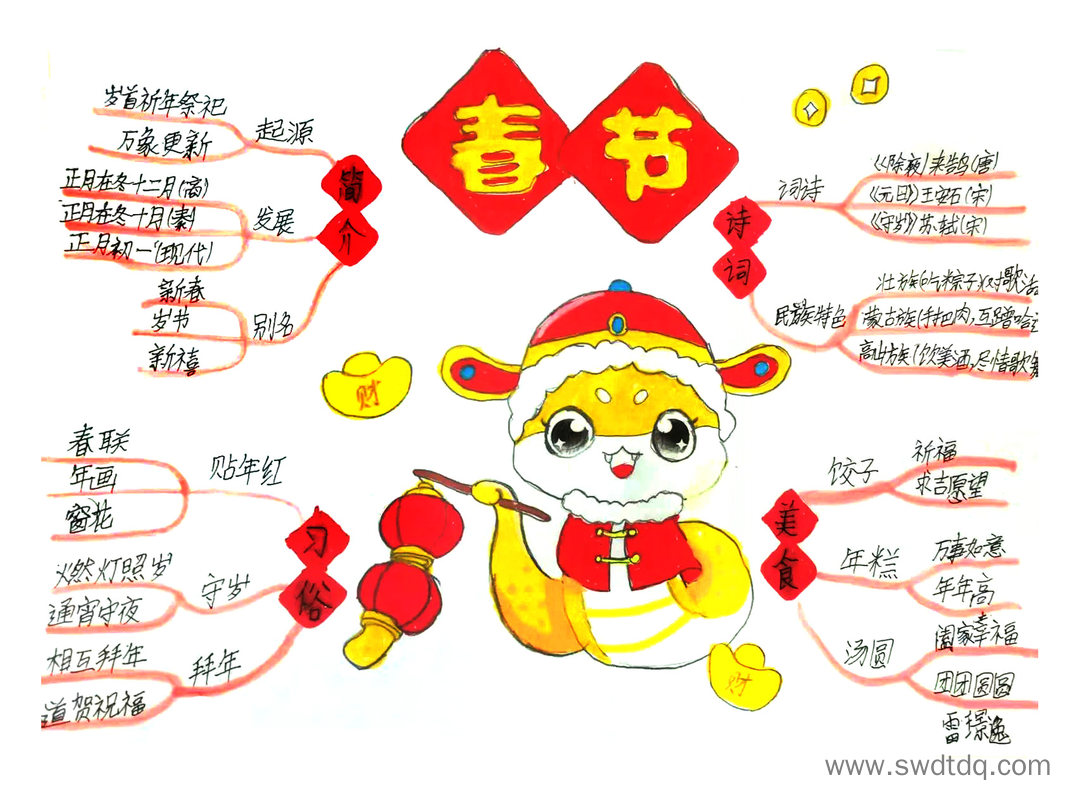 春节
简介
起源
岁首祈年祭祀
万象更新
发展
正月在冬十二月(商)
正月在冬十月(秦)
正月初一(现代)
别名
新春
岁节
新禧
诗词
词诗
《除夜》来鹄(唐)
《元日》王安石(宋)
《守岁》苏轼(宋)
民族特色
壮族(吃粽子)(对歌
蒙古族(手把肉,互
高山族(饮美酒,尽情歌
财
习俗
贴年红
春联
年画
窗花
守岁
燃灯照岁
通宵守夜
拜年
相互拜年
道贺祝福
美食
饺子
祈福
求吉愿望
年糕
万事如意
年年高
汤圆
阖家幸福
团团圆圆
财
雷璟逸
www.swdtdq.com